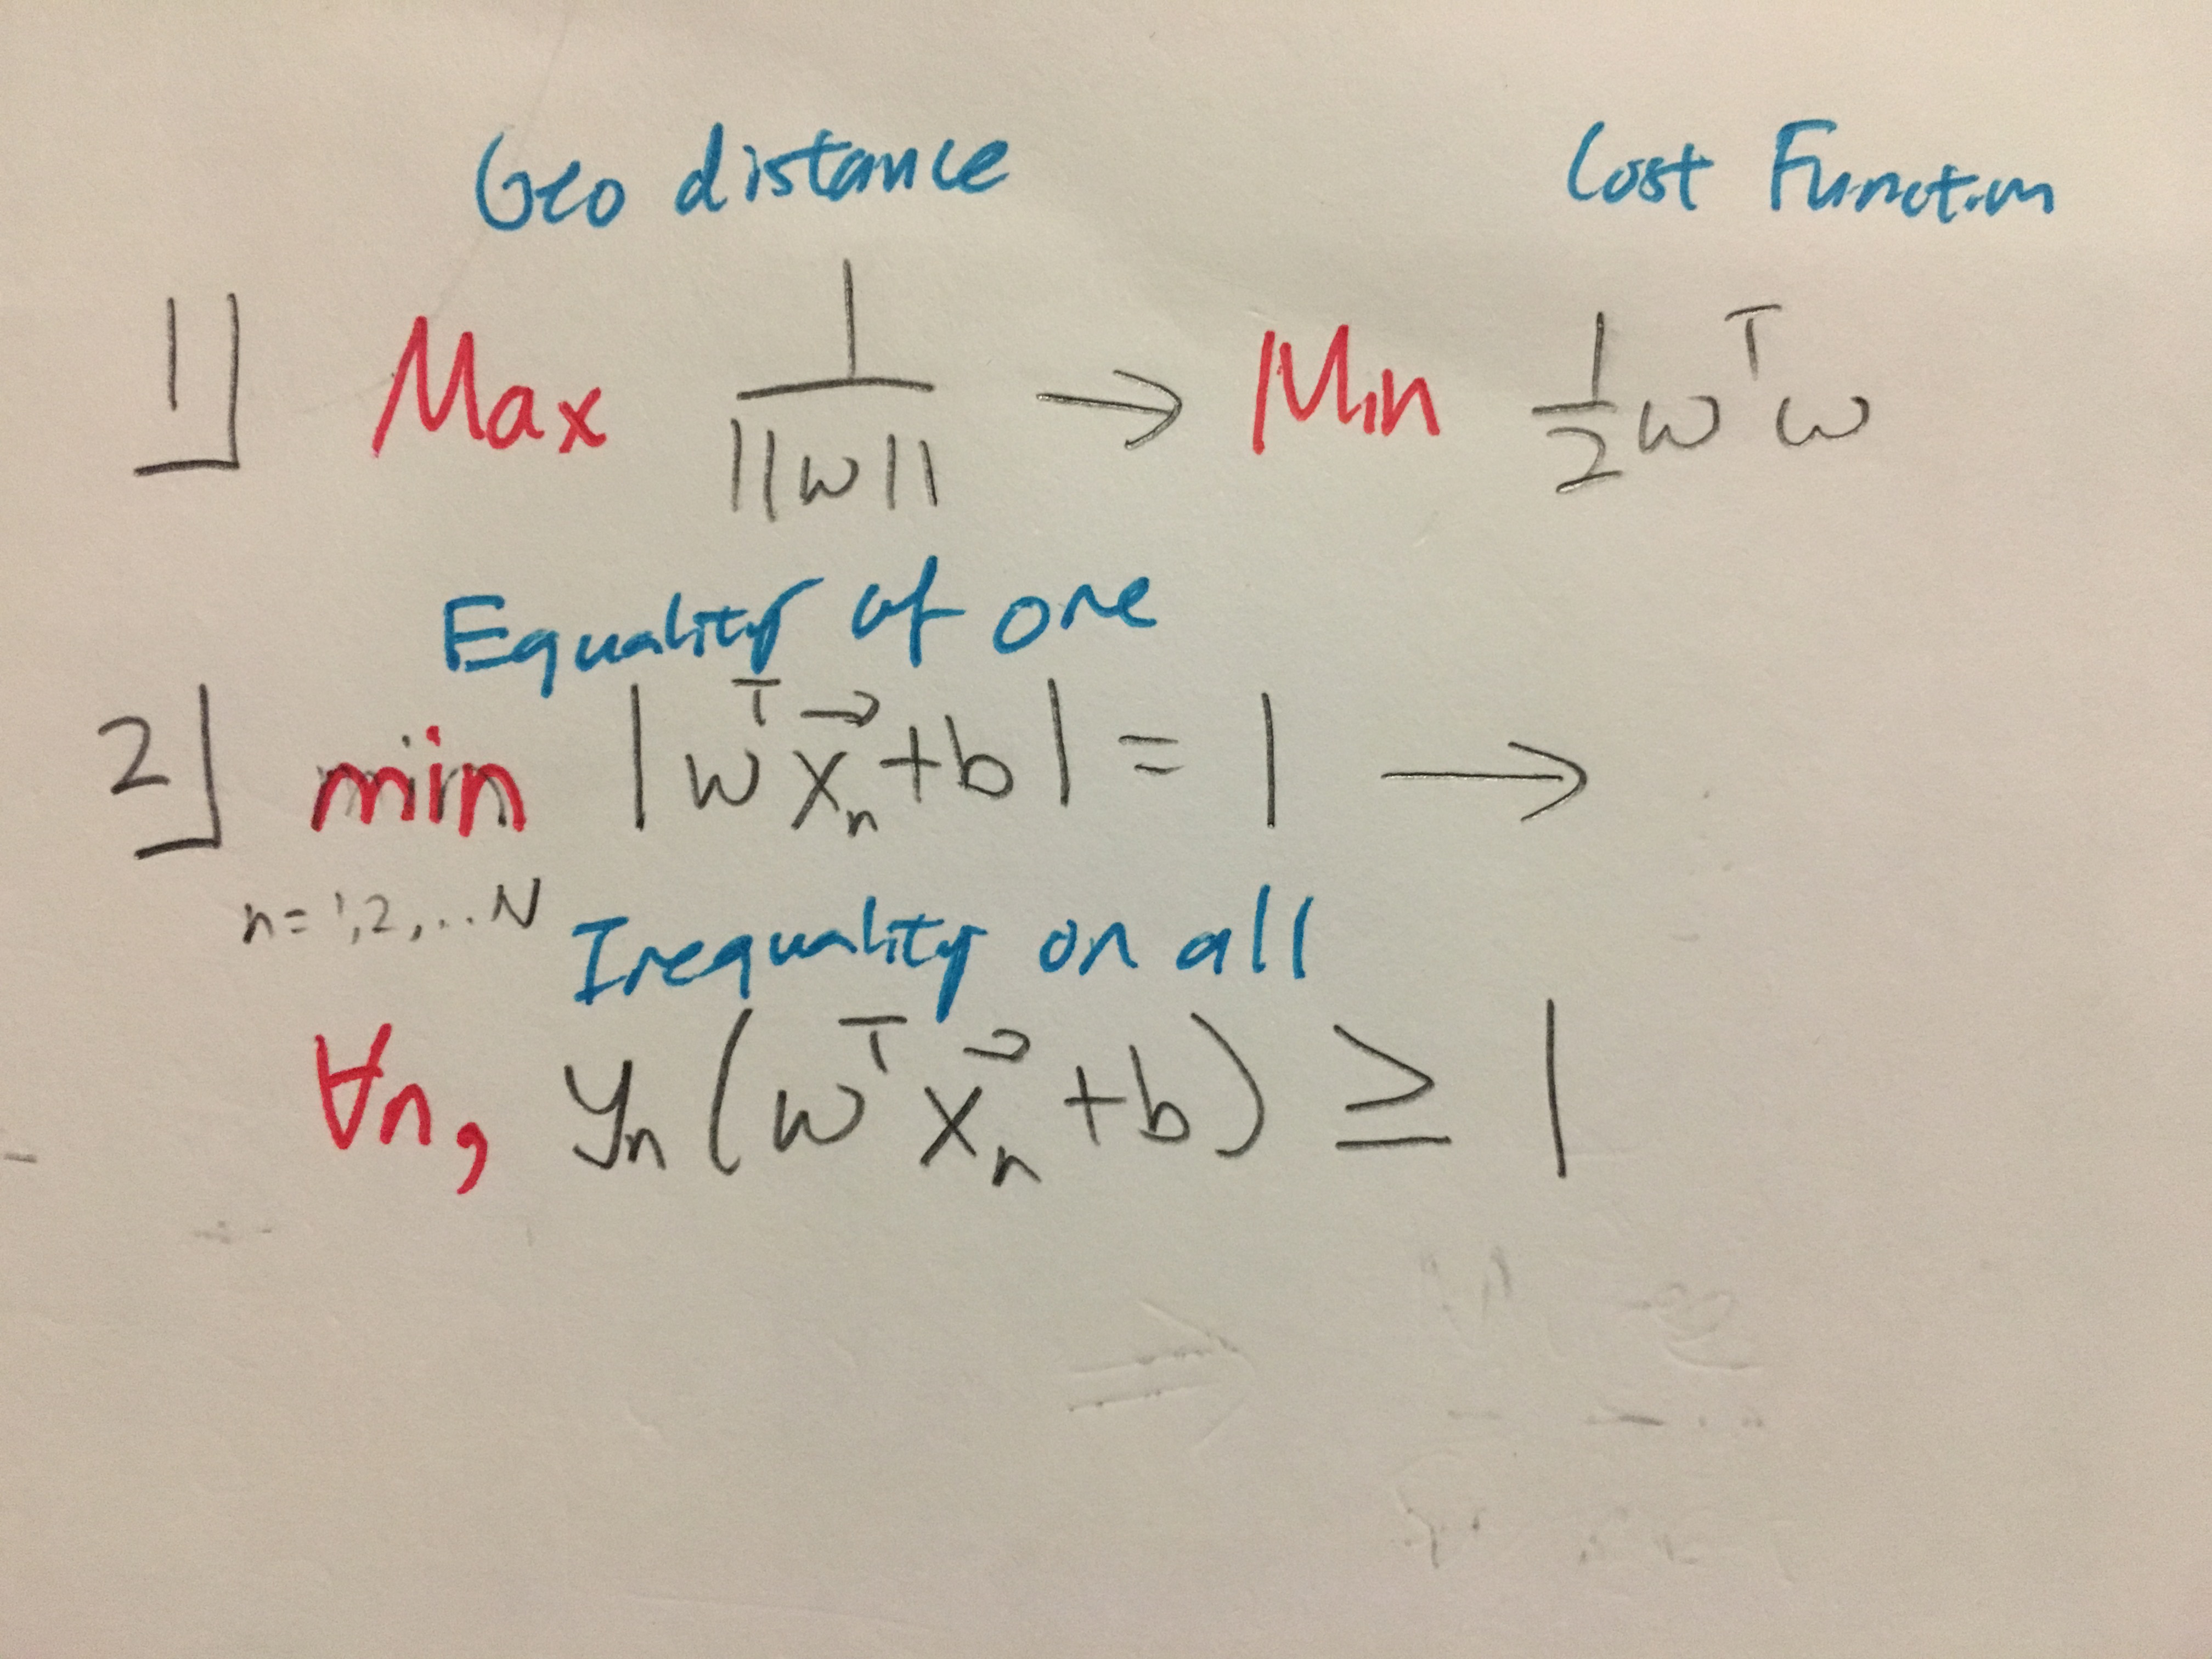 Geo distance Cost Function
1] Max 1/||w|| → Min 1/2 wᵀw
Equality of one
2] min |wᵀx⃗ₙ+b| = 1 →
n=1,2,..N
Inequality on all
∀n, yₙ(wᵀx⃗ₙ+b) ≥ 1